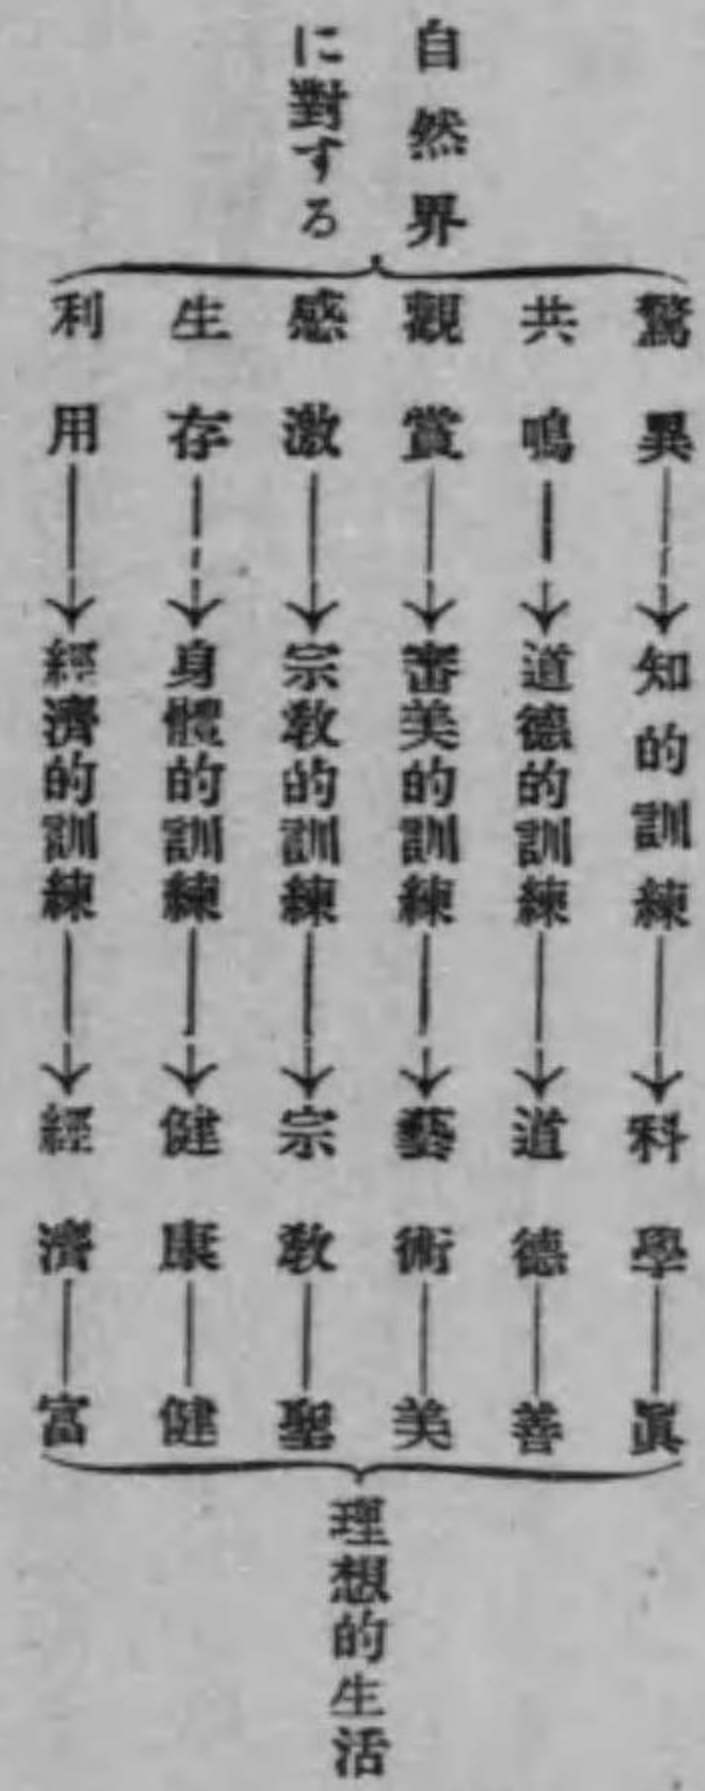 自然界
に對する
驚異——→知的訓練——→科學——眞
共鳴——→道德的訓練——→道德——善
觀賞——→審美的訓練——→藝術——美
感激——→宗教的訓練——→宗教——聖
生存——→身體的訓練——→健康——健
利用——→經濟的訓練——→經濟——富
理想的生活